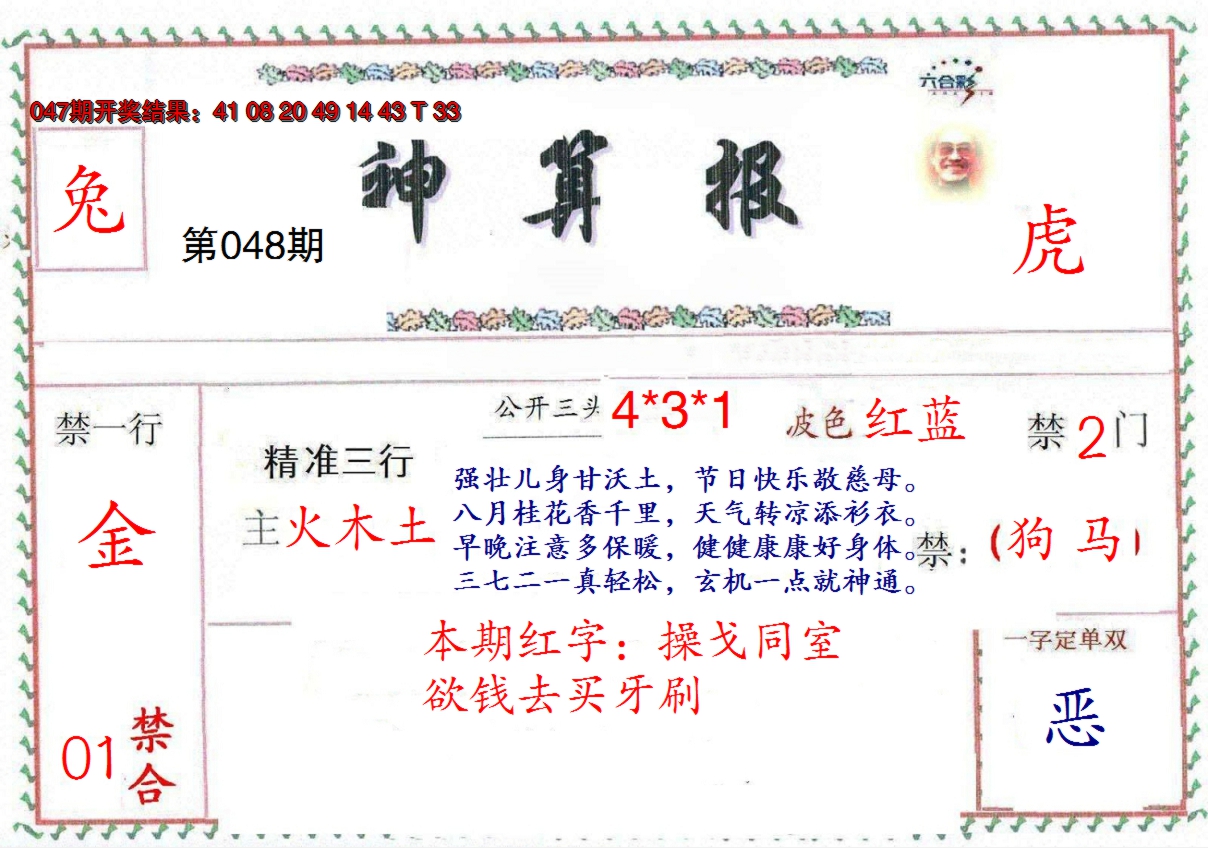 六合彩
047期开奖结果：41 08 20 49 14 43 T 33
兔
神算报
第048期
虎
禁一行
金
01
禁合
精准三行
主火木土
公开三头 4*3*1
波色 红蓝
禁2门
强壮儿身甘沃土，节日快乐敬慈母。
八月桂花香千里，天气转凉添衫衣。
早晚注意多保暖，健健康康好身体。
三七二一真轻松，玄机一点就神通。
禁：（狗 马）
本期红字：操戈同室
欲钱去买牙刷
一字定单双
恶